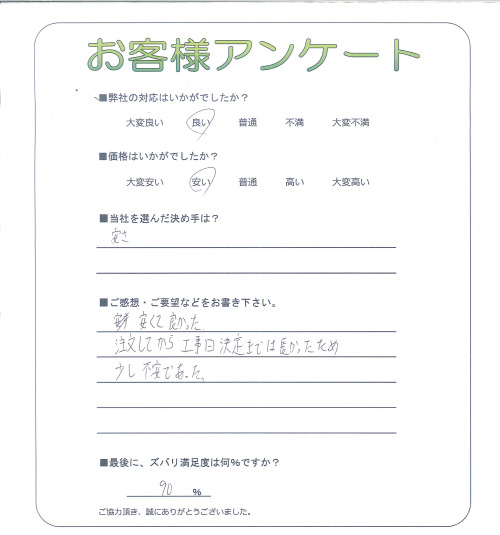 お客様アンケート
■弊社の対応はいかがでしたか？
大変良い 良い 普通 不満 大変不満
■価格はいかがでしたか？
大変安い 安い 普通 高い 大変高い
■当社を選んだ決め手は？
安さ
■ご感想・ご要望などをお書き下さい。
安くて良かった。
注文してから工事日決定までは長かったため
少し不安であった。
■最後に、ズバリ満足度は何%ですか？
90 %
ご協力頂き、誠にありがとうございました。